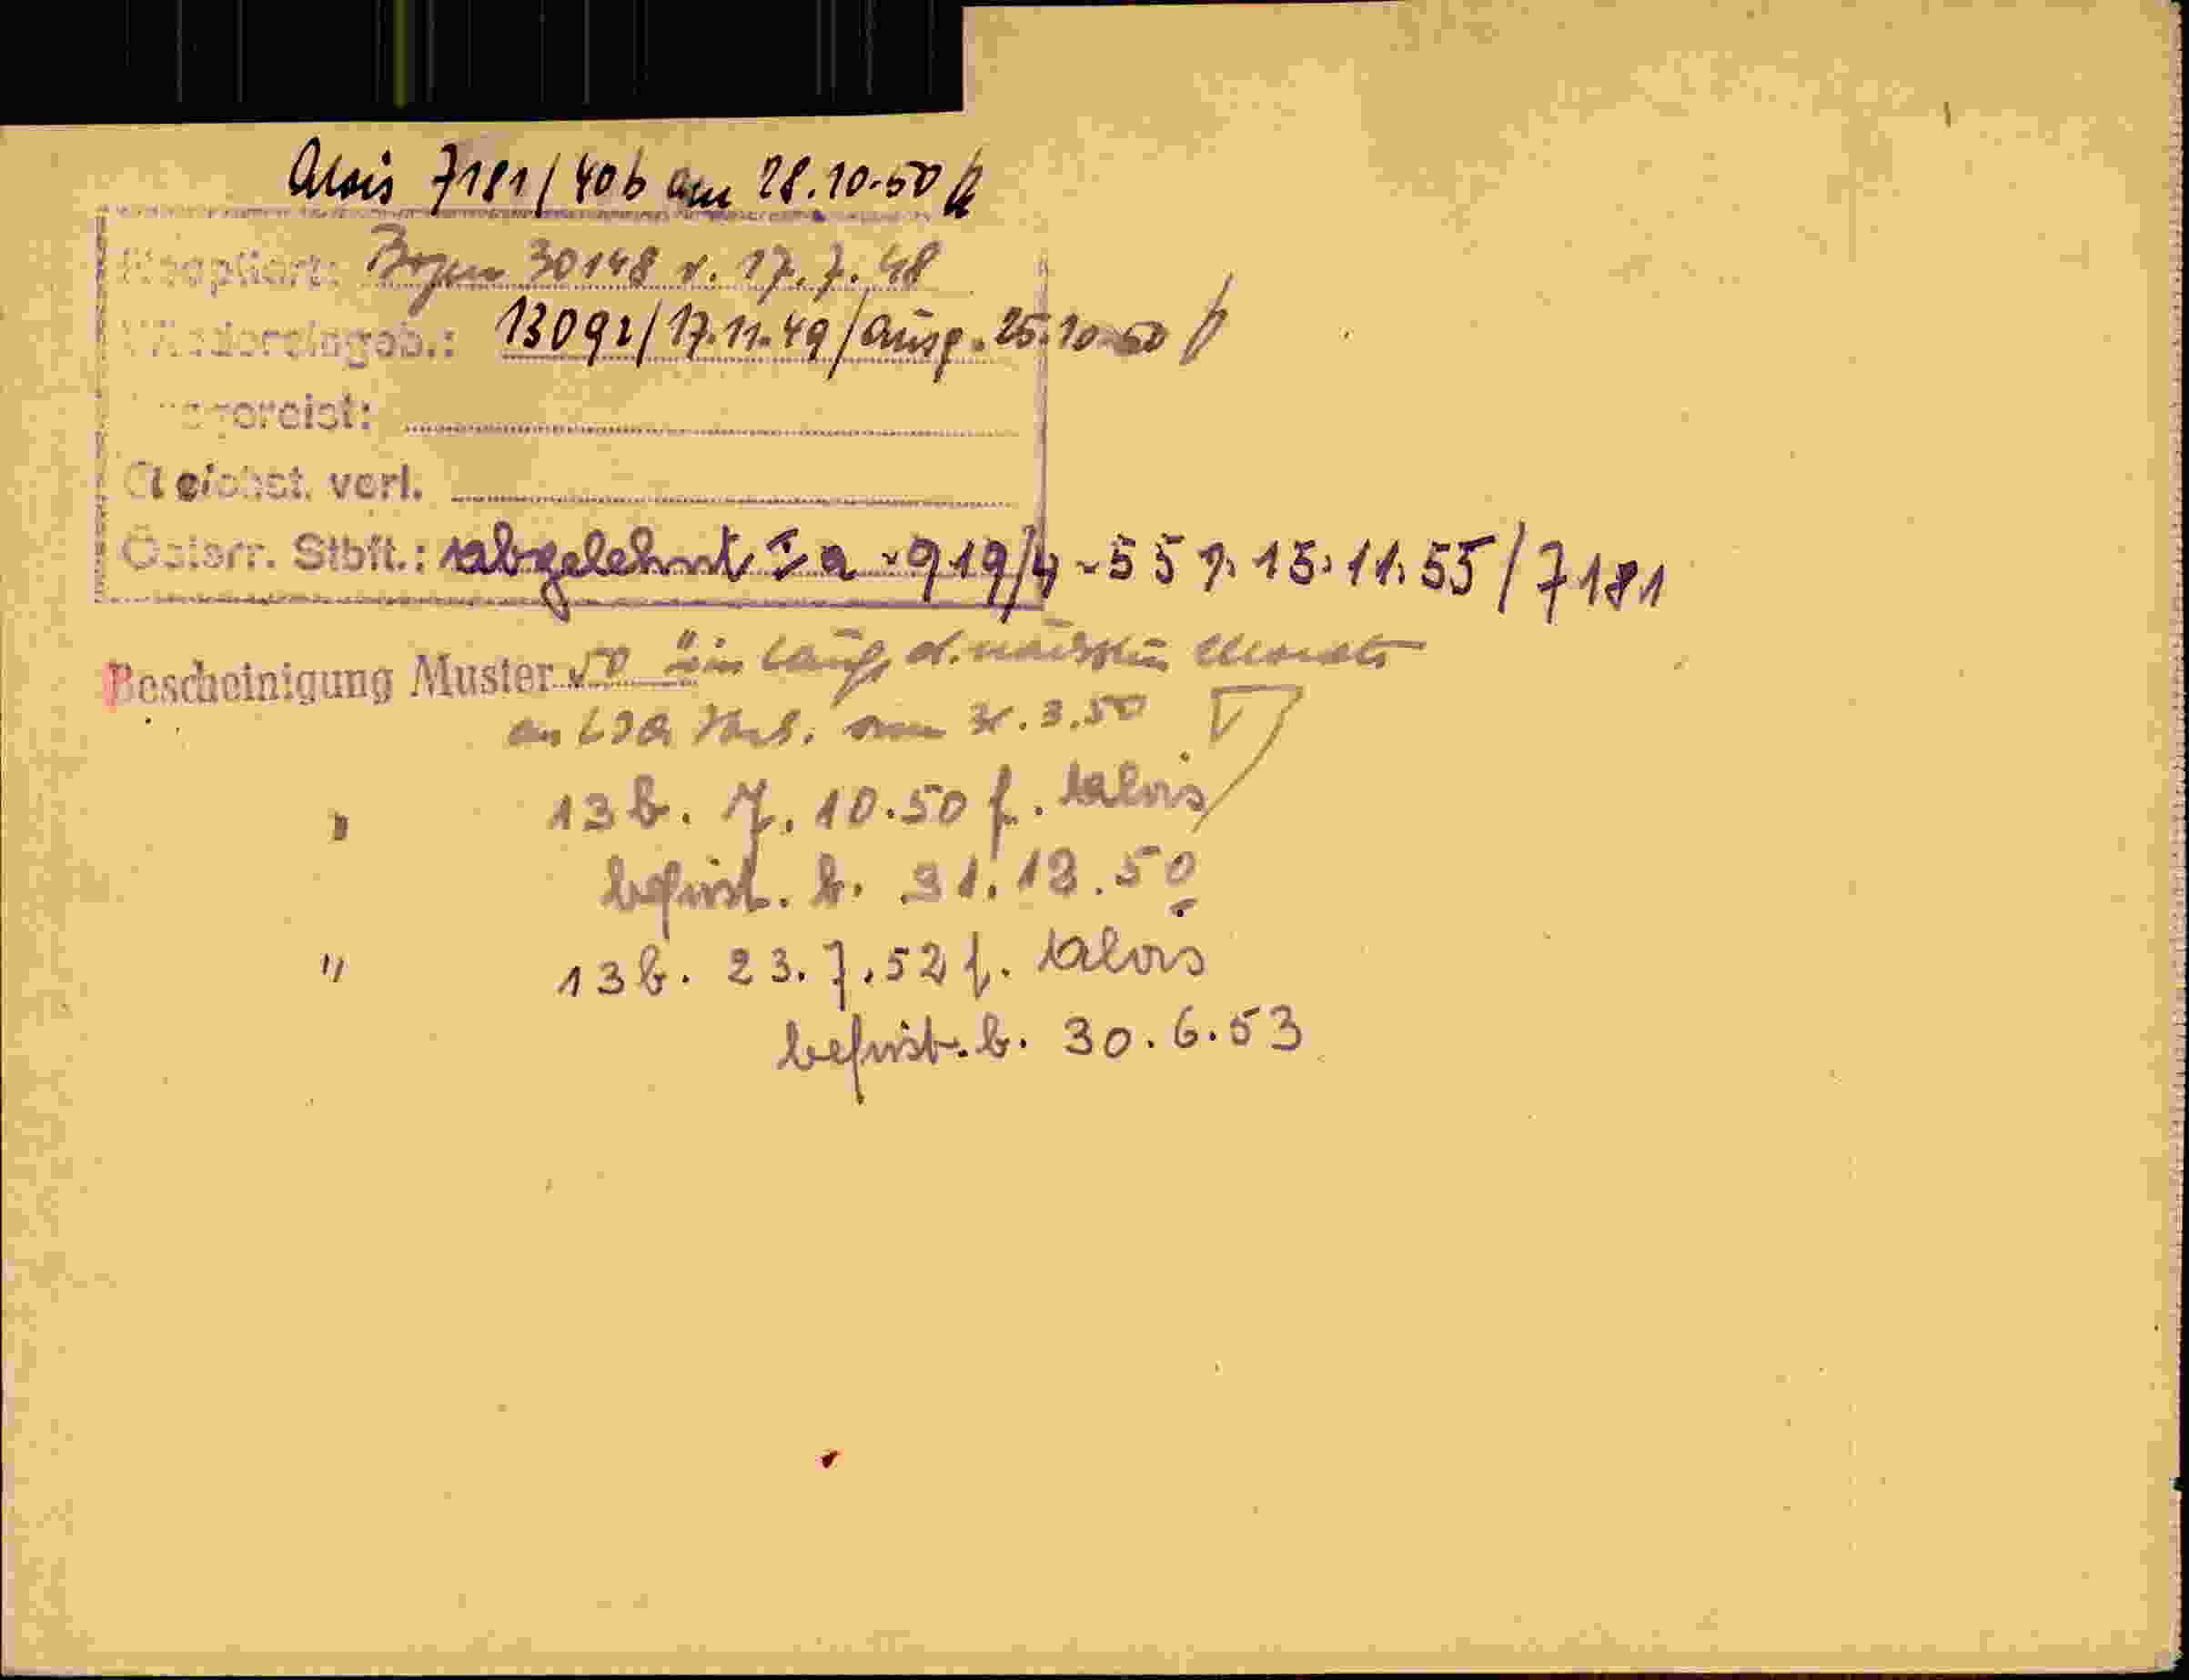 Alois 7181/40b am 28.10.50
Reoptiert: Bozen 30148 v. 17.7.48
Wiedereingeb.: 13092/17.11.49/Ausg. 25.10.50
gereist:
Gleichst. verl.
Österr. Stbft.: abgelehnt Ia-919/4-55 v. 15.11.55/7181
Bescheinigung Muster 50 im Laufe d. nächsten Monats
an 3.50
" 13b. 7.10.50 f. Alois
befrist. b. 31.12.50
" 13b. 23.7.52 f. Alois
befrist. b. 30.6.53